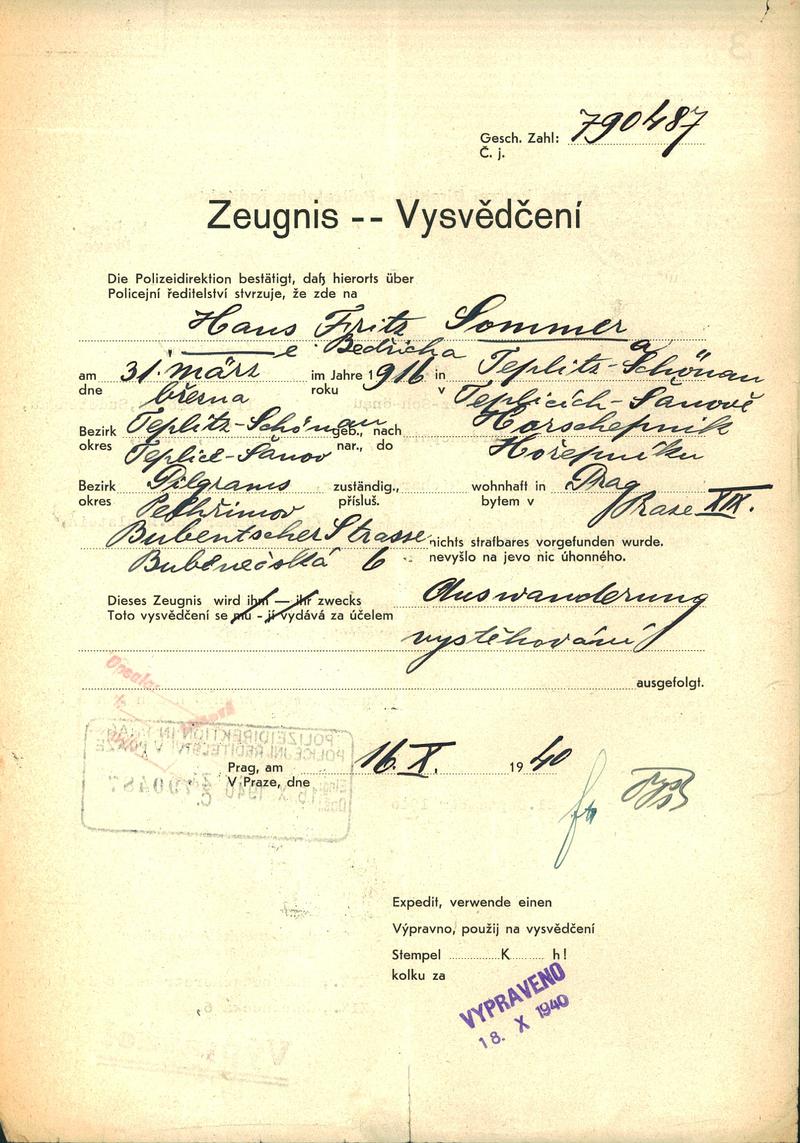 Gesch. Zahl: 790487
Č. j.
Zeugnis -- Vysvědčení
Die Polizeidirektion bestätigt, daß hierorts über
Policejní ředitelství stvrzuje, že zde na
Hans Fritz Sommer
e Bedřicha a
am 31. März im Jahre 1916 in Teplitz-Schönau
dne března roku v Teplicích-Šanově
Bezirk Teplitz-Schönau geb., nach Horschepnik
okres Teplice-Šanov nar., do Hořepníku
Bezirk Pilgrams zuständig., wohnhaft in Prag
okres Pelhřimov přísluš. bytem v Praze XIX.
Bubentscher Strasse nichts strafbares vorgefunden wurde.
Bubenečská 6 nevyšlo na jevo nic úhonného.
Dieses Zeugnis wird ihm — ihr zwecks Auswanderung
Toto vysvědčení se mu - jí vydává za účelem
vystěhování
ausgefolgt.
POLIZEIDIREKTION IN PRAG
POLICEJNÍ ŘEDITELSTVÍ V PRAZE
Prag, am 16. X. 1940
V Praze, dne
Expedit, verwende einen
Výpravno, použij na vysvědčení
Stempel ............K........ h!
kolku za
VYPRAVENO
18. X 1940